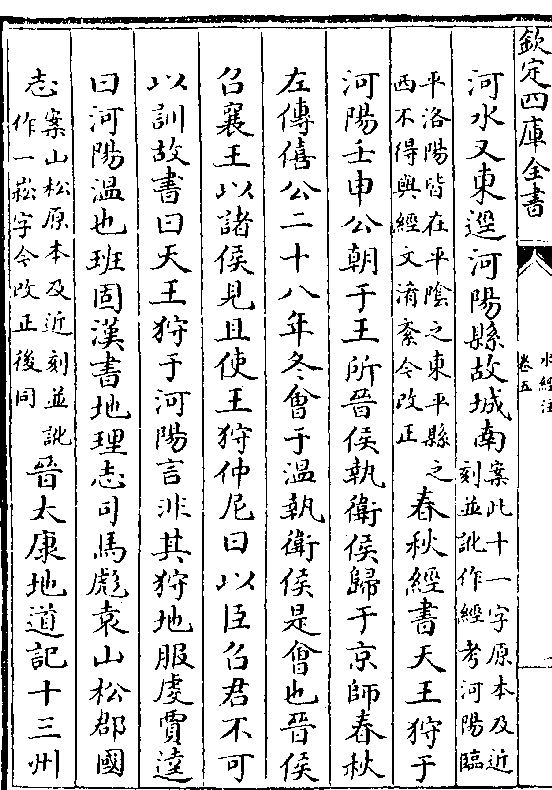 欽定四庫全書
水經注
卷五
河水又東逕河陽縣故城南案此十一字原本及近
刻並訛作經考河陽臨
平洛陽皆在平陰之東平縣之
西不得與經文淆紊今改正春秋經書天王狩于
河陽壬申公朝于王所晉侯執衛侯歸于京師春秋
左傳僖公二十八年冬會于溫執衛侯是會也晉侯
召襄王以諸侯見且使王狩仲尼曰以臣召君不可
以訓故書曰天王狩于河陽言非其狩地服虔賈逵
曰河陽溫也班固漢書地理志司馬彪袁山松郡國
志案山松原本及近刻並訛
作一崧字今改正後同晉太康地道記十三州